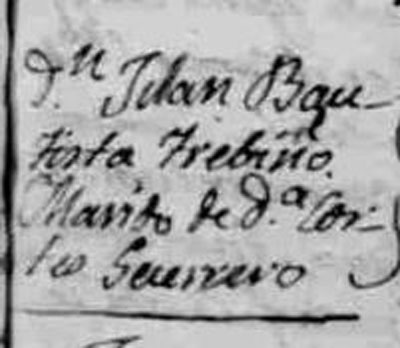 D.n Juan Bau-
tista Trebiño.
Marido de d.a Cor-
Guerrero